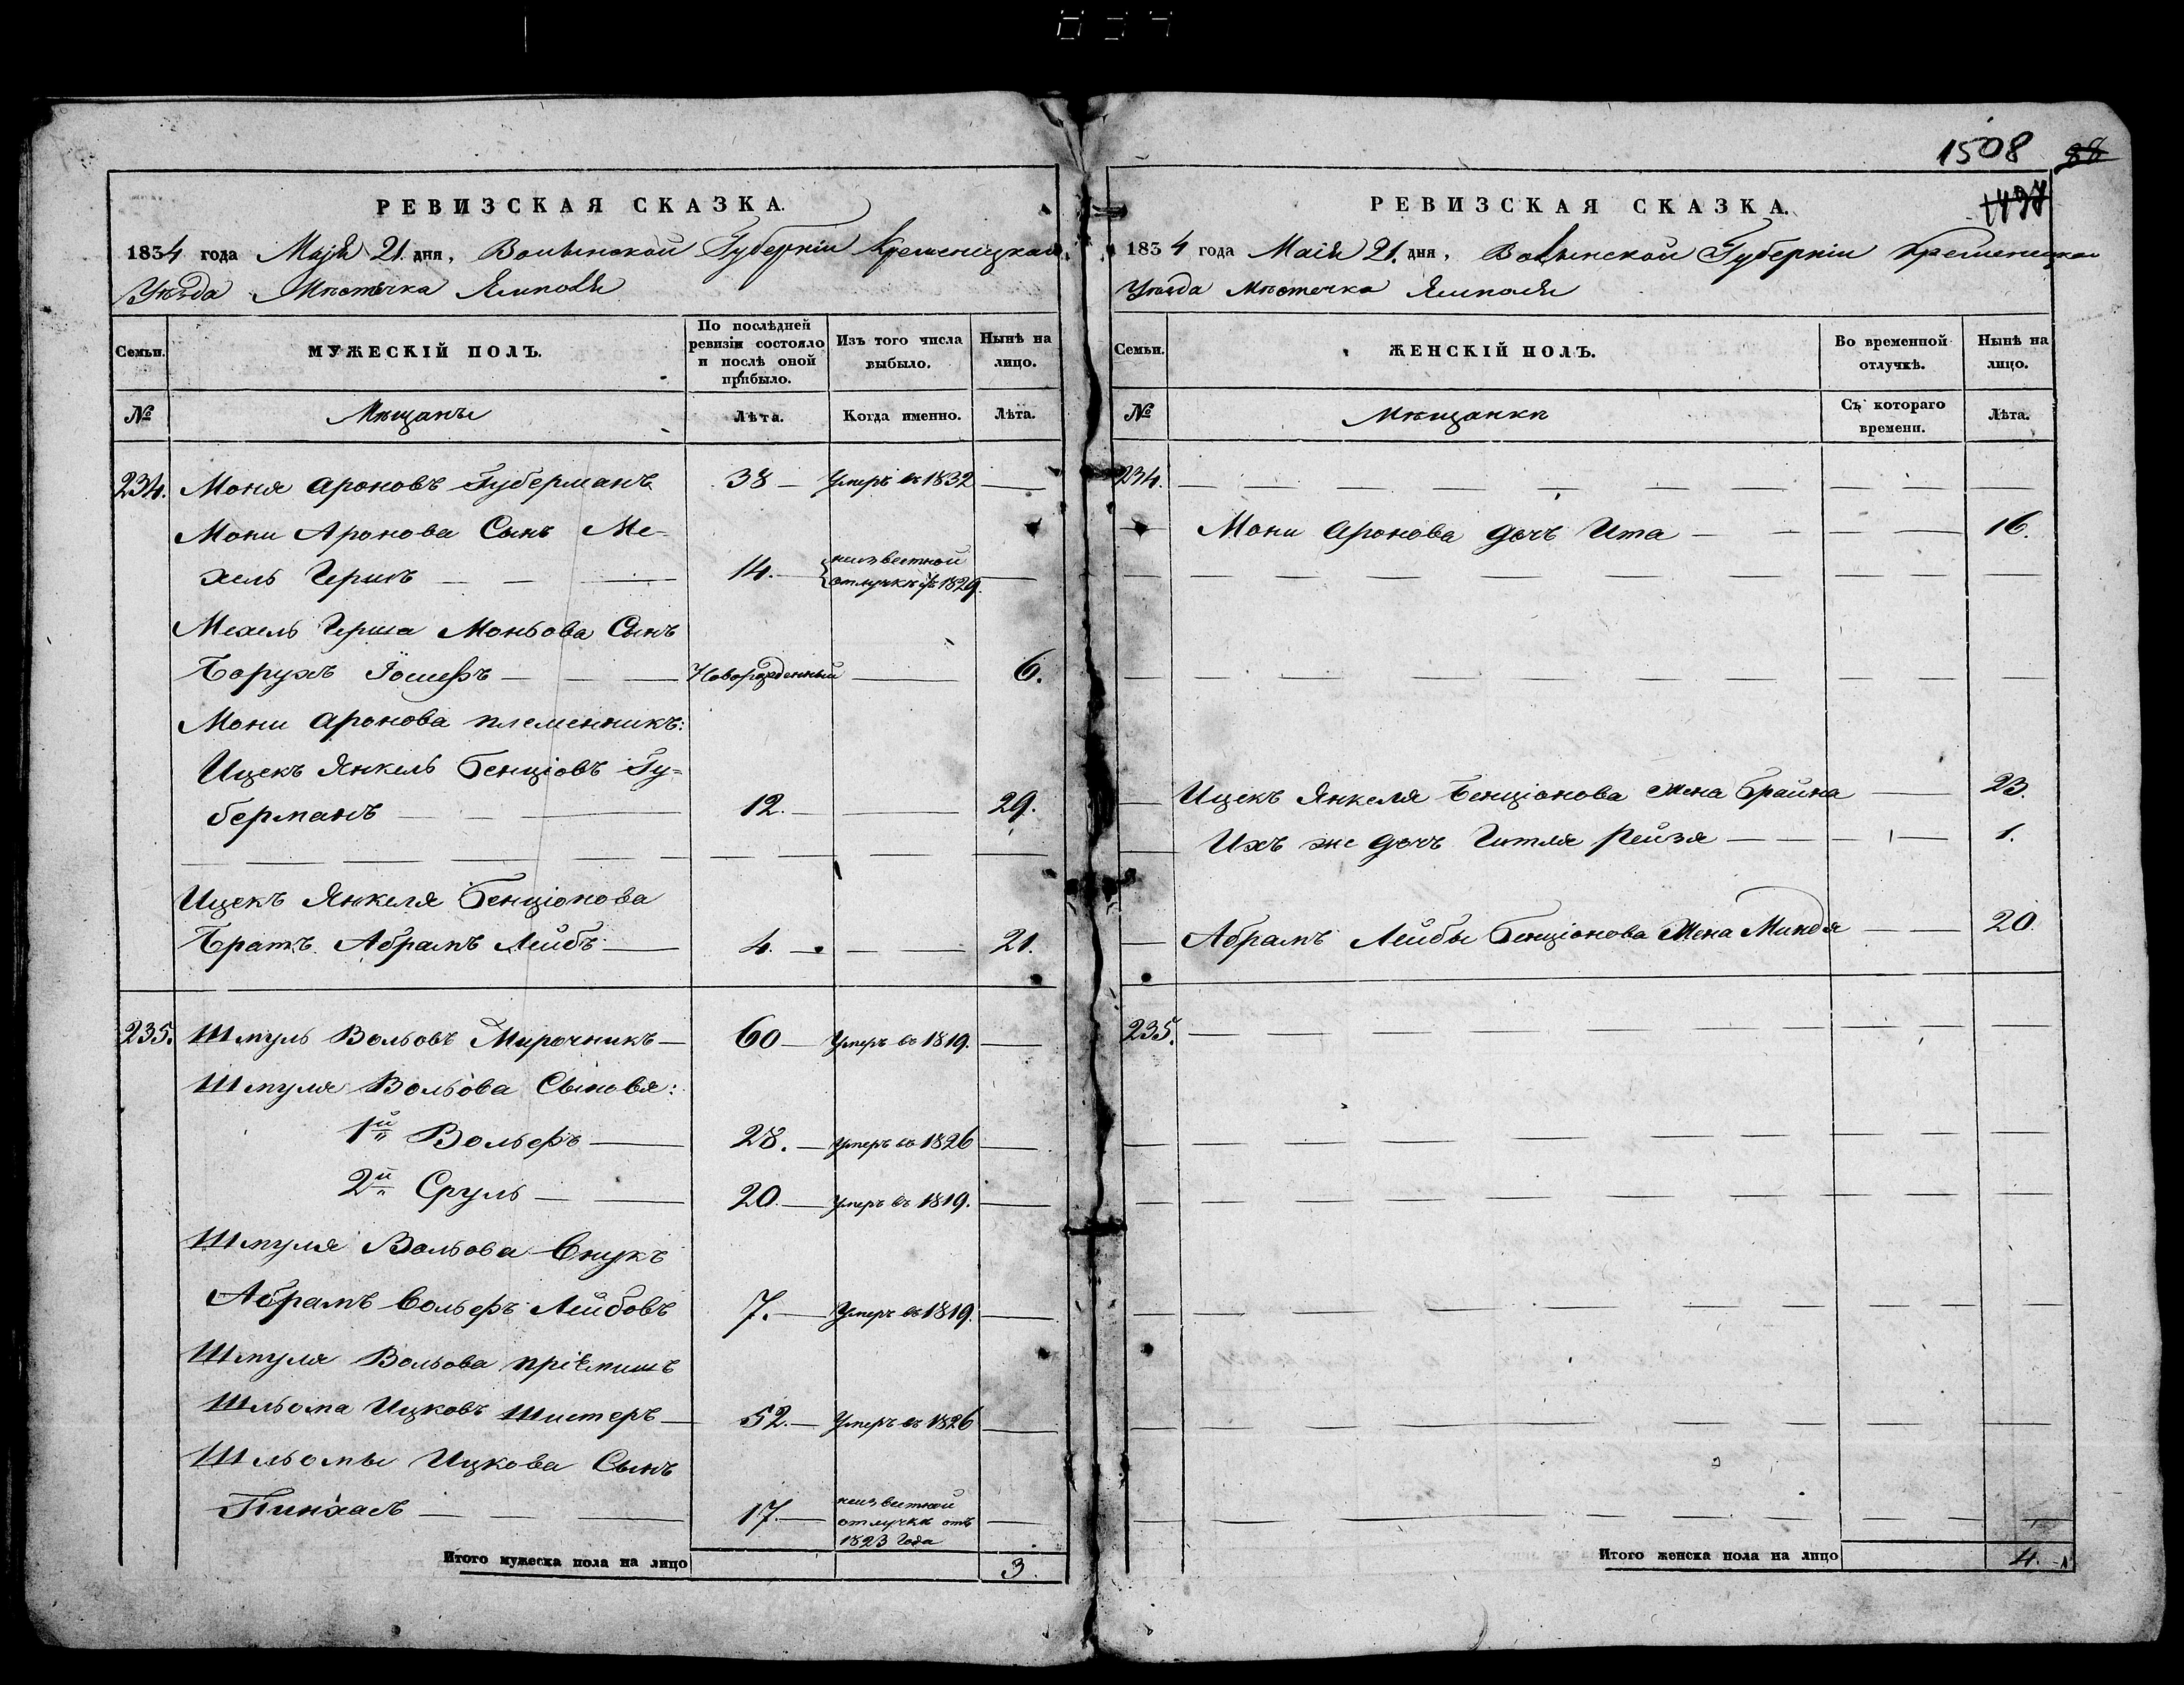 1508 88
1497
РЕВИЗСКАЯ СКАЗКА.
1834 года Маія 21. дня, Волынской Губерніи Кременецкаго
Уѣзда Мѣстечка Ямполя
Семьи.
МУЖЕСКІЙ ПОЛЪ.
По послѣдней ревизіи состояло и послѣ оной прибыло.
Изъ того числа выбыло.
Нынѣ на лицо.
№ Мѣщанъ Лѣта. Когда именно. Лѣта.
234. Моня Ароновъ Губерманъ 38 — Умеръ въ 1832 —
Мони Аронова Сынъ Ме-
хель Гершъ — — — 14. — неизвестной
отлучкѣ съ 1829. —
Мехель Герша Моньова Сынъ
Борухъ Іошефъ — — — Новорожденный — 6.
Мони Аронова племенникъ:
Ицекъ Янкель Бенціовъ Гу-
берманъ — — — 12. — — 29.
Ицекъ Янкеля Бенціонова
Братъ Абрамъ Лейбъ — 4. — — — 21.
235. Шмуль Вольовъ Мирочникъ — 60 — Умеръ въ 1819. —
Шмуля Вольова Сыновья:
1й Вольфъ — 28. — умеръ въ 1826 —
2й Сруль — — 20. — умеръ въ 1819. —
Шмуля Вольова Внукъ
Абрамъ Вольфъ Лейбовъ 7. — Умеръ въ 1819. —
Шмуля Вольова пріемишъ
Шльома Ицковъ Шистеръ — 52. — Умеръ въ 1826 —
Шльомы Ицкова Сынъ
Пинхасъ — — — 17 — неизвестной
отлучкѣ отъ
1823 года —
Итого мужеска пола на лицо 3.
РЕВИЗСКАЯ СКАЗКА.
1834 года Маія 21. дня, Волынской Губерніи Кременецкаго
Уѣзда Мѣстечка Ямполя
Семьи.
ЖЕНСКІЙ ПОЛЪ.
Во временной отлучкѣ.
Нынѣ на лицо.
№ Мѣщанки Съ котораго времени. Лѣта.
234. — — — — — — — — —
— Мони Аронова дочъ Ита — — — — 16.
— Ицекъ Янкеля Бенціонова жена Брайна — 23.
— Ихъ же дочъ Гитля Рейзя — — — — 1.
— Абрамъ Лейбы Бенціонова Жена Миндя — — 20.
235. — — — — — — — — —
Итого женска пола на лицо 4.